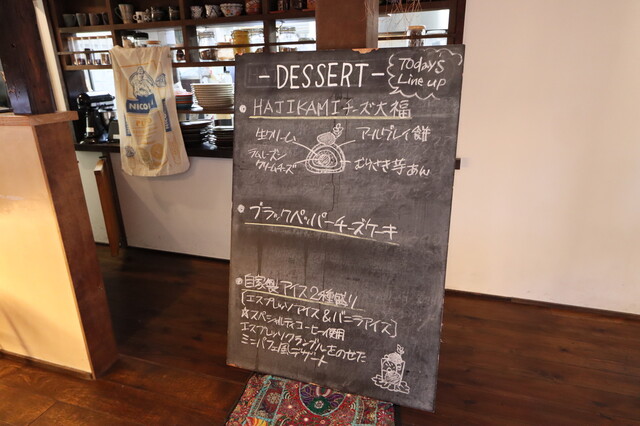 - DESSERT -
TODAY'S
Line up
HAJIKAMIチーズ大福
生クリーム
アールグレイ餅
ラムレーズン
クリームチーズ
むらさき芋あん
ブラックペッパーチーズケーキ
自家製アイス2種盛り
[エスプレッソアイス&バニラアイス]
☆スペシャルティコーヒー使用
エスプレッソクランブルをのせた
ミニパフェ風デザート
NICO